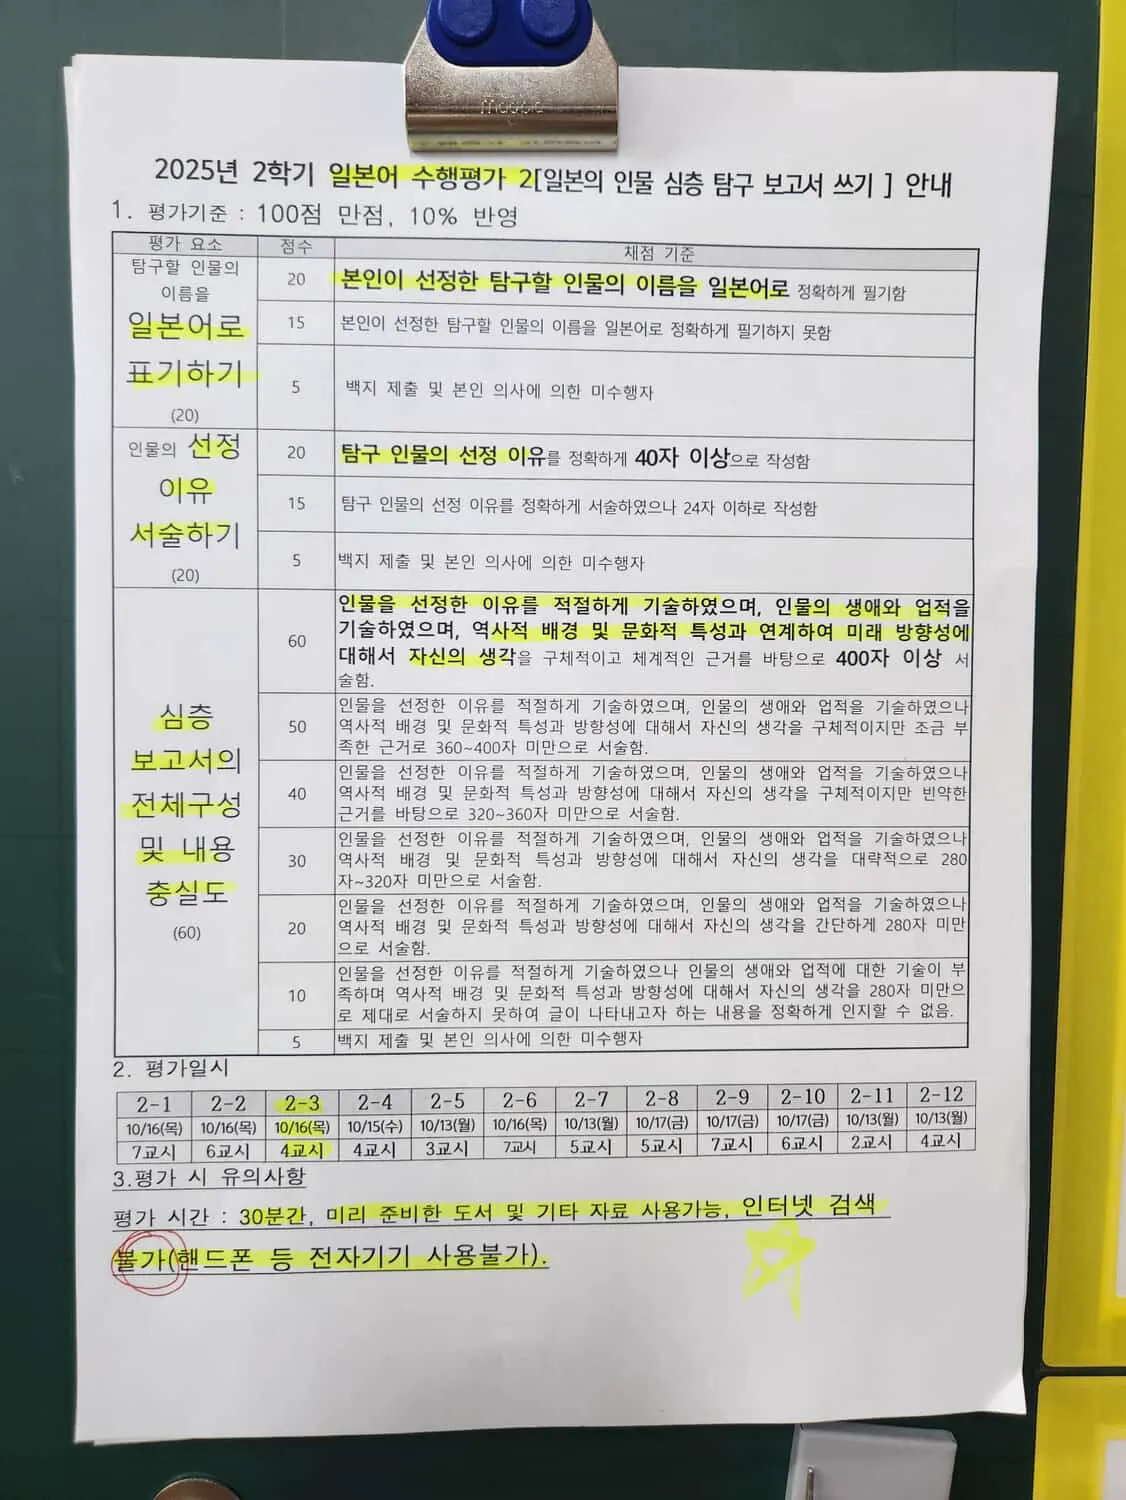 Mapple
2025년 2학기 일본어 수행평가 2[일본의 인물 심층 탐구 보고서 쓰기 ] 안내
1. 평가기준 : 100점 만점, 10% 반영
평가 요소 점수 채점 기준
탐구할 인물의
이름을
일본어로
표기하기
(20)
20 본인이 선정한 탐구할 인물의 이름을 일본어로 정확하게 필기함
15 본인이 선정한 탐구할 인물의 이름을 일본어로 정확하게 필기하지 못함
5 백지 제출 및 본인 의사에 의한 미수행자
인물의 선정
이유
서술하기
(20)
20 탐구 인물의 선정 이유를 정확하게 40자 이상으로 작성함
15 탐구 인물의 선정 이유를 정확하게 서술하였으나 24자 이하로 작성함
5 백지 제출 및 본인 의사에 의한 미수행자
심층
보고서의
전체구성
및 내용
충실도
(60)
60 인물을 선정한 이유를 적절하게 기술하였으며, 인물의 생애와 업적을
기술하였으며, 역사적 배경 및 문화적 특성과 연계하여 미래 방향성에
대해서 자신의 생각을 구체적이고 체계적인 근거를 바탕으로 400자 이상 서
술함.
50 인물을 선정한 이유를 적절하게 기술하였으며, 인물의 생애와 업적을 기술하였으나
역사적 배경 및 문화적 특성과 방향성에 대해서 자신의 생각을 구체적이지만 조금 부
족한 근거로 360~400자 미만으로 서술함.
40 인물을 선정한 이유를 적절하게 기술하였으며, 인물의 생애와 업적을 기술하였으나
역사적 배경 및 문화적 특성과 방향성에 대해서 자신의 생각을 구체적이지만 빈약한
근거를 바탕으로 320~360자 미만으로 서술함.
30 인물을 선정한 이유를 적절하게 기술하였으며, 인물의 생애와 업적을 기술하였으나
역사적 배경 및 문화적 특성과 방향성에 대해서 자신의 생각을 대략적으로 280
자~320자 미만으로 서술함.
20 인물을 선정한 이유를 적절하게 기술하였으며, 인물의 생애와 업적을 기술하였으나
역사적 배경 및 문화적 특성과 방향성에 대해서 자신의 생각을 간단하게 280자 미만
으로 서술함.
10 인물을 선정한 이유를 적절하게 기술하였으나 인물의 생애와 업적에 대한 기술이 부
족하며 역사적 배경 및 문화적 특성과 방향성에 대해서 자신의 생각을 280자 미만으
로 제대로 서술하지 못하여 글이 나타내고자 하는 내용을 정확하게 인지할 수 없음.
5 백지 제출 및 본인 의사에 의한 미수행자
2. 평가일시
2-1 2-2 2-3 2-4 2-5 2-6 2-7 2-8 2-9 2-10 2-11 2-12
10/16(목) 10/16(목) 10/16(목) 10/15(수) 10/13(월) 10/16(목) 10/13(월) 10/17(금) 10/17(금) 10/17(금) 10/13(월) 10/13(월)
7교시 6교시 4교시 4교시 3교시 7교시 5교시 5교시 7교시 6교시 2교시 4교시
3.평가 시 유의사항
평가 시간 : 30분간, 미리 준비한 도서 및 기타 자료 사용가능, 인터넷 검색
불가(핸드폰 등 전자기기 사용불가).